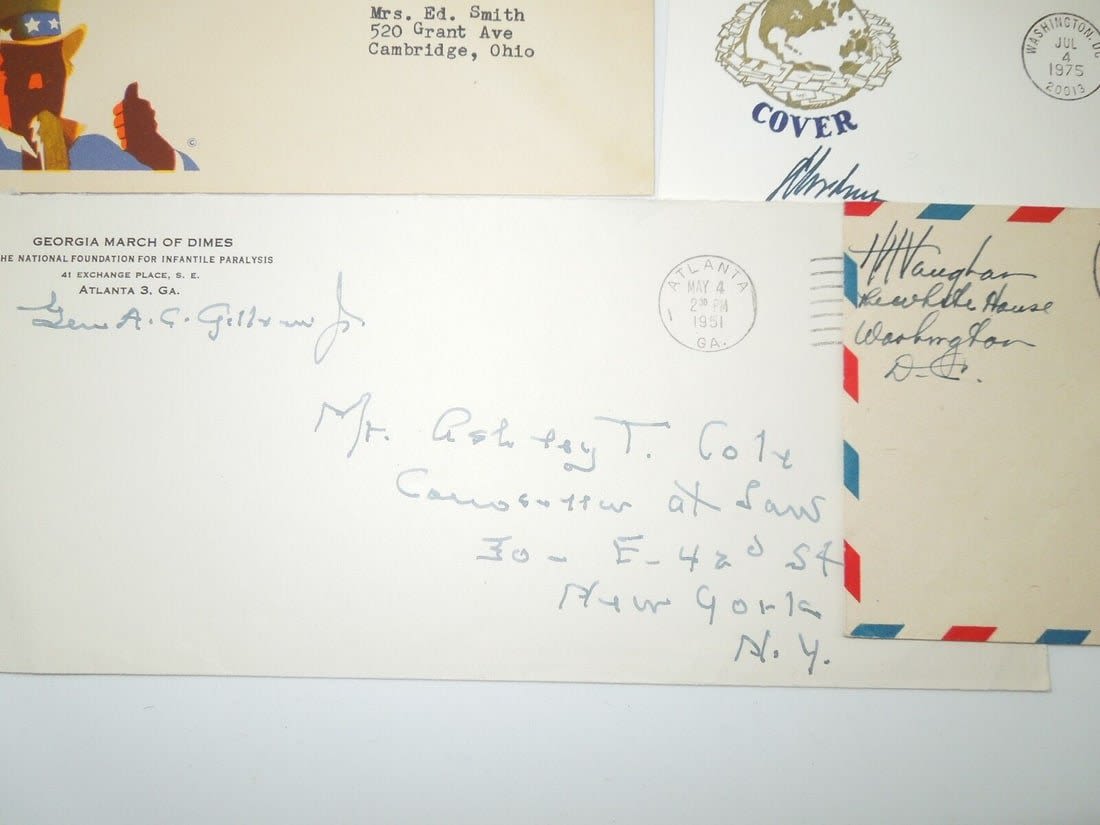 Mrs. Ed. Smith
520 Grant Ave
Cambridge, Ohio
©
COVER
WASHINGTON, DC
JUL
4
1975
20013
GEORGIA MARCH OF DIMES
HE NATIONAL FOUNDATION FOR INFANTILE PARALYSIS
41 EXCHANGE PLACE, S. E.
ATLANTA 3, GA.
Gen A. C. Gillem Jr
ATLANTA
MAY 4
2 00 PM
1951
GA.
Mr. Ashley T. Cole
at Law
30 - E - 42d St
New York
N. Y.
HHVaughan
The White House
Washington
D. C.